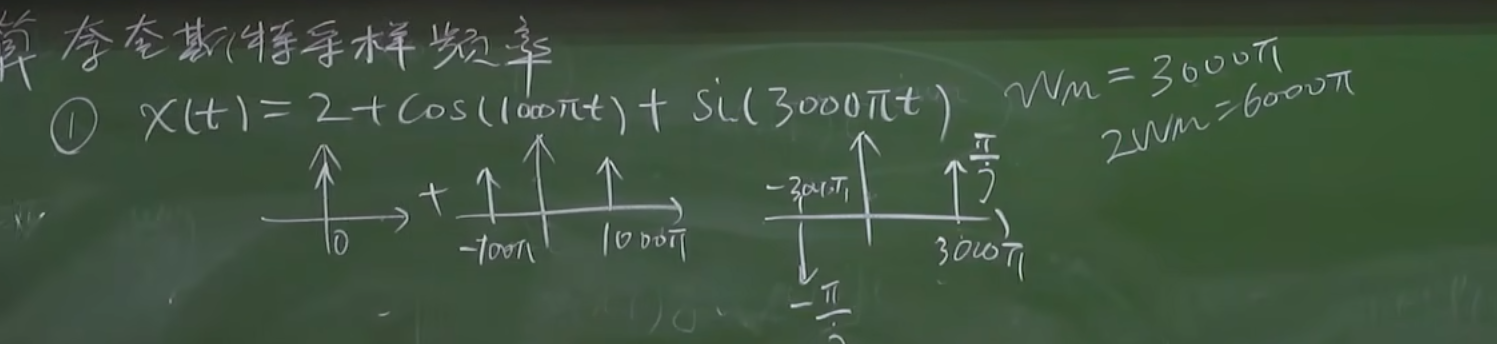 算奈奎斯特采样频率
① x(t)=2+cos(1000πt)+si(3000πt) Wm=3000π
2Wm=6000π
+ -300π π/j
0 -100π 1000π 3000π
-π/j